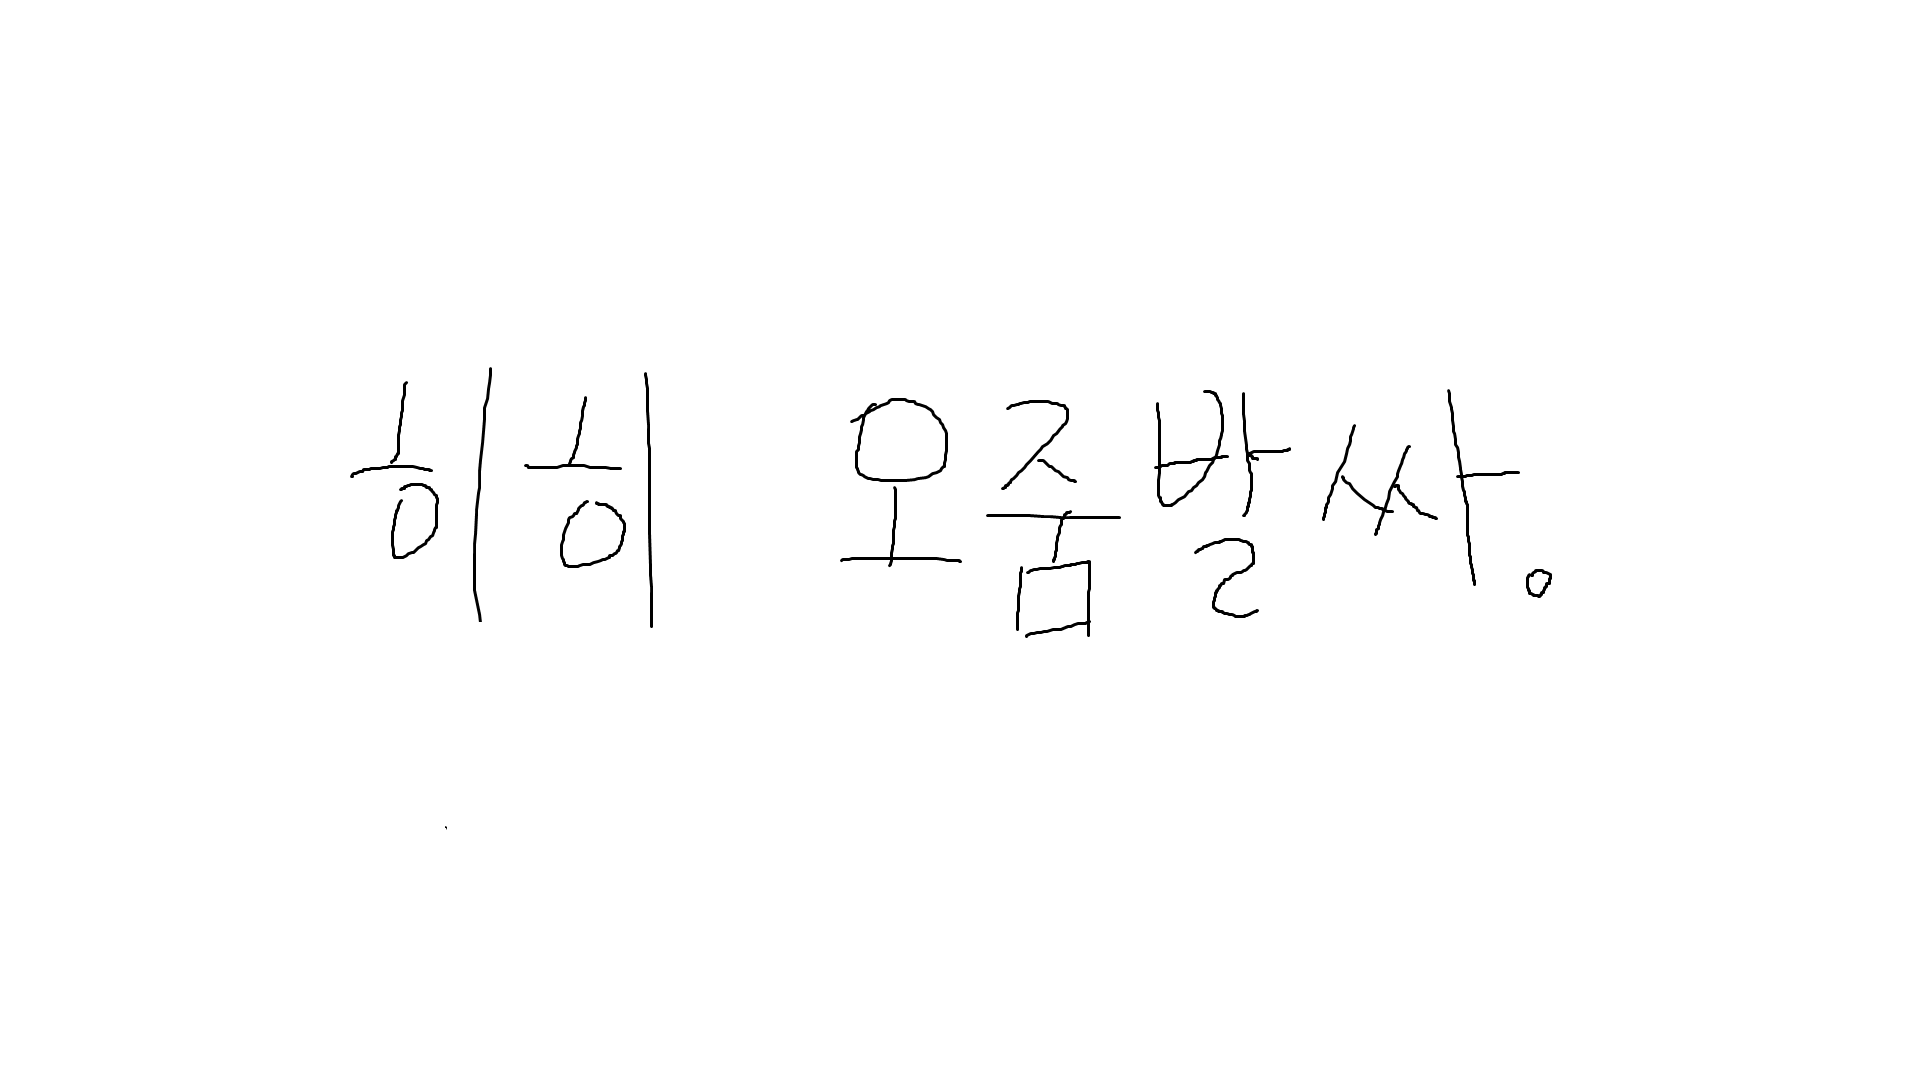 히히 오줌발싸.